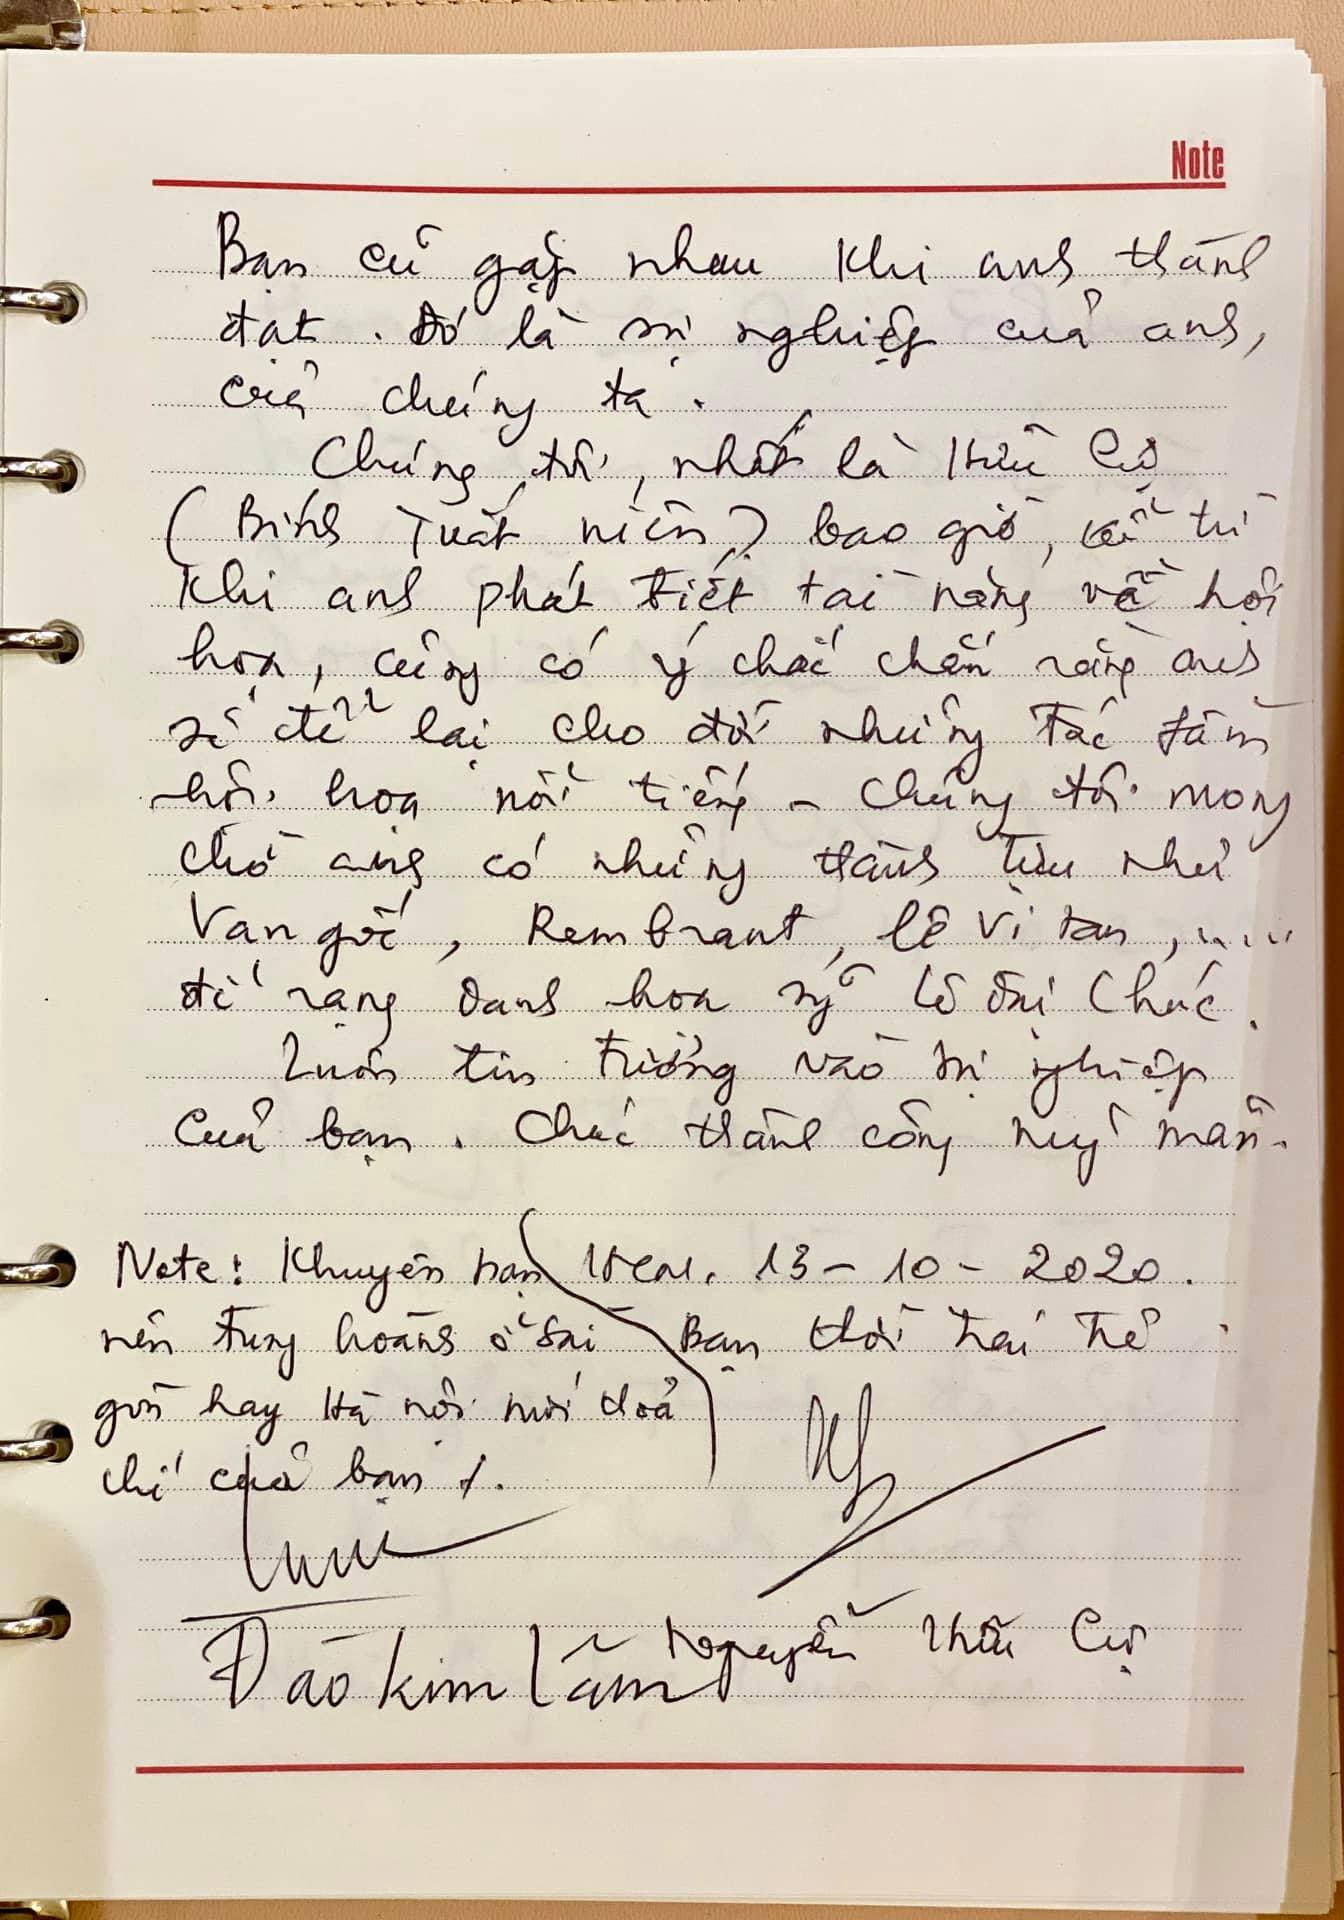 Note
Bạn cũ gặp nhau khi anh thành
đạt. Đó là sự nghiệp của anh,
của chúng ta.
Chúng tôi, nhất là Hữu Cự
(Bính Tuất niên) bao giờ, kể từ
khi anh phát tiết tài năng về hội
họa, cũng có ý chắc chắn rằng anh
sẽ để lại cho đời những tác phẩm
hội họa nổi tiếng - Chúng tôi mong
chờ anh có những thành tựu như
Van gốc, Rembrant, Lê Vi tan, .....
để rạng danh họa sỹ Lê Đại Chúc.
Luôn tin tưởng vào sự nghiệp
của bạn. Chúc thành công mỹ mãn.
Note: Khuyên bạn
nên trung hoành ở Sài
gòn hay Hà nội mới thoả
chí của bạn ./.
13-10-2020.
Bạn thời trai trẻ
Đào Kim Lãm
Nguyễn Hữu Cự